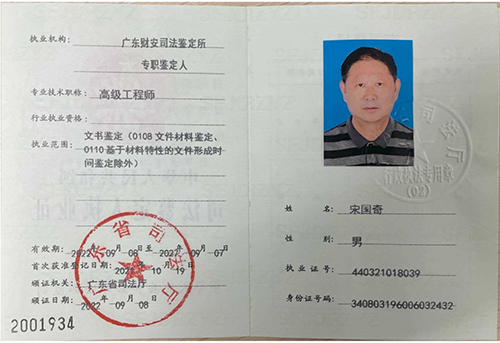 执业机构: 广东财安司法鉴定所
专职鉴定人
专业技术职称: 高级工程师
行业执业资格:
执业范围: 文书鉴定（0108 文件材料鉴定、
0110 基于材料特性的文件形成时
间鉴定除外）
有效期: 2022年09月08日至2027年09月07日
首次获准登记日期: 10月19日
颁证机关: 广东省司法厅
颁证日期: 2022年09月08日
2001934
广东省司法厅
姓名 宋国奇
性别 男
执业证号: 440321018039
身份证号码: 340803196006032432
司法厅
(02)